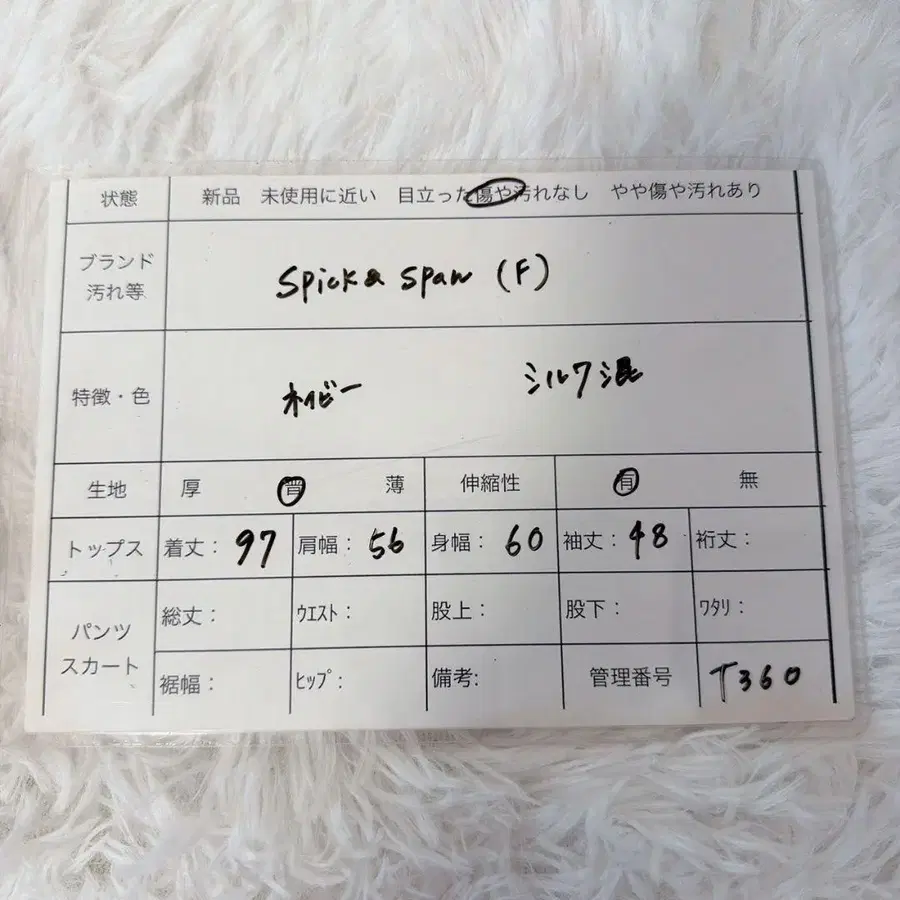 状態 新品 未使用に近い 目立った傷や汚れなし やや傷や汚れあり
ブランド
汚れ等
Spick & Span (F)
特徴・色 ネイビー シルク混
生地 厚 普 薄 伸縮性 有 無
トップス 着丈: 97 肩幅: 56 身幅: 60 袖丈: 48 裄丈:
パンツ
スカート
総丈: ウエスト: 股上: 股下: ワタリ:
裾幅: ヒップ: 備考: 管理番号 T360